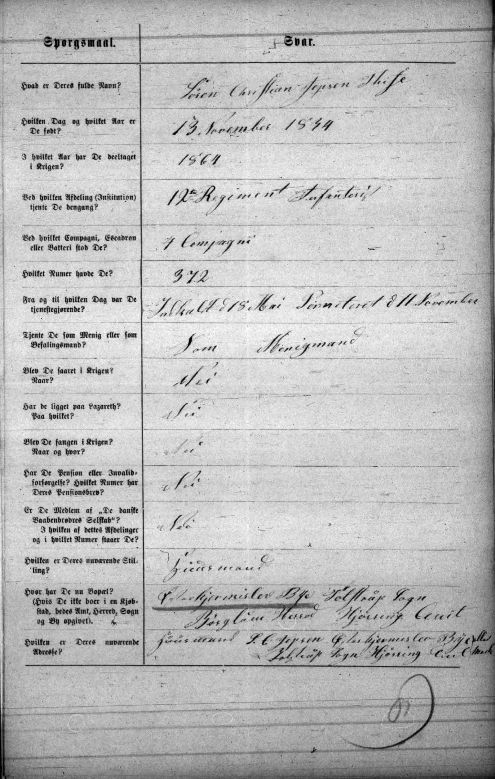 Spørgsmaal. Svar.
Hvad er Deres fulde Navn? Søren Christian Jepsen Thise
Hvilken Dag og hvilket Aar er
De født? 13 November 1834
I hvilket Aar har De deeltaget
i Krigen? 1864
Ved hvilken Afdeling (Institution)
tjente De dengang? 12te Regiment Infanteri
Ved hvilket Compagni, Escadron
eller Batteri stod De? 7 Compagni
Hvilket Numer havde De? 372
Fra og til hvilken Dag var De
tjenestegjørende? Indkalt d 18 Mai d 11 November
Tjente De som Menig eller som
Befalingsmand? Som Menigmand
Blev De saaret i Krigen?
Naar? Nei
Har De ligget paa Lazareth?
Paa hvilket? Nei
Blev De fangen i Krigen?
Naar og hvor? Nei
Har De Pension eller Invalid-
forsørgelse? Hvilket Numer har
Deres Pensionsbrev? Nei
Er De Medlem af „De danske
Vaabenbrødres Selskab"?
I hvilken af dettes Afdelinger
og i hvilket Numer staaer De? Nei
Hvilken er Deres nuværende Stil-
ling? Huusmand
Hvor har De nu Bopæl?
(Hvis De ikke boer i en Kjøb-
stad, bedes Amt, Herred, Sogn
og By opgivet). Bye Tolstrup Sogn
Børglum Herred Hjørring Amt
Hvilken er Deres nuværende
Adresse? Huusmand S. C. Jepsen Bye
Tolstrup Sogn Hjørring Amt